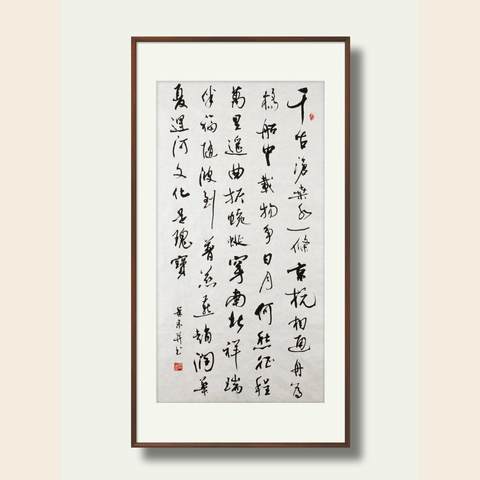 千古滄桑水一條京杭相通舟為
橋船中載物爭日月何愁征程
萬里遙曲折蜿蜒穿南北祥瑞
伴福隨波到普惠燕趙潤華
夏運河文化是瑰寶